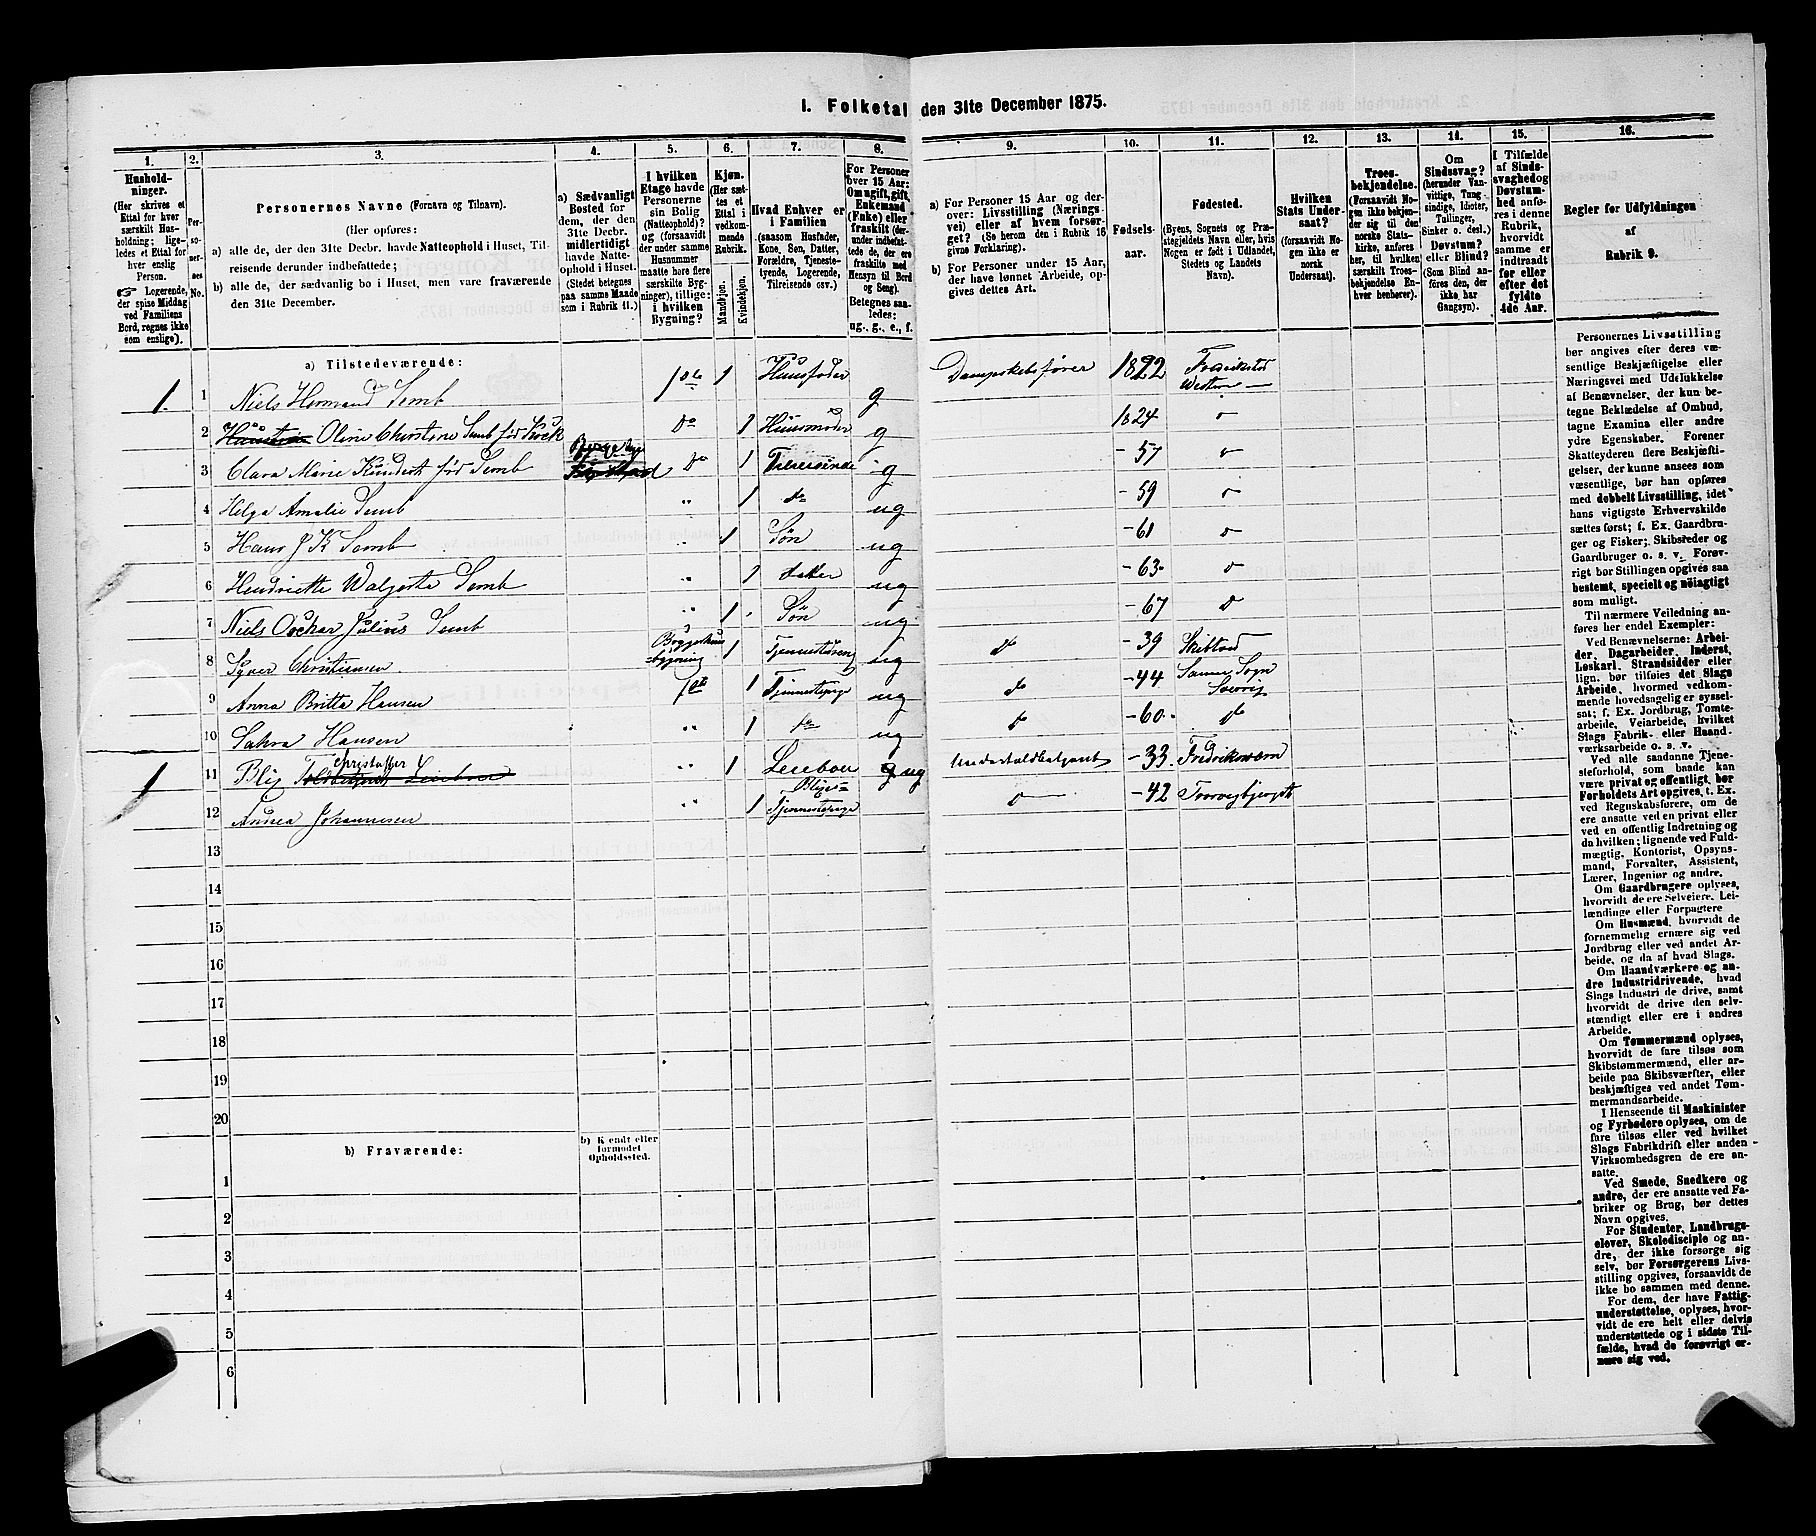 I. Folketal den 31te December 1875.
1. 2. 3. 4. 5. 6. 7. 8. 9. 10. 11. 12. 13. 14. 15. 16.
Husholdninger.
(Her skrives et
Ettal for hver
særskilt Husholdning; ligeledes
et Ettal for
hver enslig
Person.
☞ Logerende,
der spise Middag
ved Familiens
Bord, regnes ikke
som enslige).
Personernes No.
Personernes Navne (Fornavn og Tilnavn).
(Her opføres:
a) alle de, der den 31te Decbr. havde Natteophold i Huset, Tilreisende derunder indbefattede;
b) alle de, der sædvanlig bo i Huset, men vare fraværende
den 31te December.
a) Sædvanligt
Bosted for
dem, der den
31te Decbr.
midlertidigt
havde Natteophold i Huset.
(Stedet betegnes
paa samme Maade
som i Rubrik 11.)
I hvilken
Etage havde
Personerne
sin Bolig
(Natteophold)?
og (forsaavidt
der under samme
Husnummer
maatte høre flere
særskilte Bygninger), tillige:
i hvilken
Bygning?
Kjøn.
(Her sættes et
Ettal i
vedkommende
Rubrik.
Mandkjøn.
Kvindekjøn.
Hvad Enhver er
i Familien
(saasom Husfader,
Kone, Søn, Datter,
Forældre, Tjenestetyende, Logerende,
Tilreisende osv.)
For Personer
over 15 Aar:
Om ugift, gift,
Enkemand
(Enke) eller
fraskilt (derunder indbefattede de, der ere
fraskilte med
Hensyn til Bord
og Seng).
Betegnes saaledes:
ug., g., e., f.
a) For Personer 15 Aar og derover: Livsstilling (Næringsvei) eller af hvem forsørget? (Se herom den i Rubrik 16
givne Forklaring).
b) For Personer under 15 Aar,
der have lønnet Arbeide, opgives dettes Art.
Fødselsaar.
Fødested.
(Byens, Sognets og Præstegjeldets Navn eller, hvis
Nogen er født i Udlandet,
Stedets og Landets
Navn).
Hvilken
Stats Undersaat?
(forsaavidt Nogen ikke er
norsk
Undersaat).
Troesbekjendelse.
(Forsaavidt Nogen ikke bekjender sig til den
norske Statskirke, anføres
her, til hvilken
særskilt Troesbekjendelse Enhver henhører).
Om
Sindssvag?
(herunder Vanvittige, Tungsindige, Idioter,
Tullinger,
Sinker o. desl.)
Døvstum?
eller Blind?
(Som Blind anføres den, der
ikke har
Gangsyn).
I Tilfælde
af Sindssvaghed og
Døvstumhed anføres i denne
Rubrik,
hvorvidt
samme er
indtraadt
før eller
efter det
fyldte
4de Aar.
Regler for Udfyldningen
af
Rubrik 9.
a) Tilstedeværende:
1. 1 Niels Hermand Semb 1ste 1 Huusfader g Dampskibsfører 1822 Fredrikstad
2 Oline Christine Semb fød Kock Do 1 Huusmoder g 1824
3 Clara Marie fød Semb Do 1 Tilreisende g -57
4 Helga Amalie Semb " 1 do ug -59
5 Hans J K Semb " 1 Søn ug -61
6 Hendriette Semb " 1 ug -63
7 Niels Osckar Julius Semb " 1 Søn ug -67
8 Christiansen 1 ug -39
9 Anna Britta Hansen 1ste 1 Tjenestepige ug -44
10 Hansen " 1 do ug -60
1 11 Blix Christoffer " 1 Leieboer ug -33
12 Johannesen " 1 Tjenestepige -42
13
14
15
16
17
18
19
20
b) Fraværende:
b) Kjendt eller
formodet
Opholdssted.
1
2
3
4
5
6
Personernes Livsstilling
bør angives efter deres væsentlige Beskjæftigelse eller
Næringsvei med Udelukkelse
af Benævnelser, der kun betegne Beklædelse af Ombud,
tagne Examina eller andre
ydre Egenskaber. Forener
Skatteyderen flere Beskjæftigelser, der kunne ansees som
væsentlige, bør han opføres
med dobbelt Livsstilling, idet
hans vigtigste Erhvervskilde
sættes først; f. Ex. Gaardbruger og Fisker; Skibsreder og
Gaardbruger o. s. v. Forøvrigt bør Stillingen opgives saa
bestemt, specielt og nöiagtigt
som muligt.
Til nærmere Veiledning anføres her endel Exempler:
Ved Benævnelserne: Arbeider, Dagarbeider, Inderst,
Løskarl, Strandsidder eller
lign. bør tilføies det Slags
Arbeide, hvormed vedkommende hovedsagelig er sysselsat; f. Ex. Jordbrug, Tomtearbeide, Veiarbeide, hvilket
Slags Fabrik- eller Haandværksarbeide o. s. v.
Ved alle saadanne Tjenesteforhold, som baade kan
være privat og offentligt, bør
Forholdets Art opgives, t. Ex.
ved Regnskabsførere, om de
ere ansatte ved en privat eller
ved en offentlig Indretning og
da hvilken; lignende ved Fuldmægtig, Kontorist, Opsynsmand, Forvalter, Assistent,
Lærer, Ingeniør og andre.
Om Gaardbrugere oplyses,
hvorvidt de ere Selveiere, Leilændinge eller Forpagtere
Om Husmænd, hvorvidt de
fornemmelig ernære sig ved
Jordbrug eller ved andet Arbeide, og da af hvad Slags.
Om Haandværkere og andre Industridrivende, hvad
Slags Industri de drive, samt
hvorvidt de drive den selvstændigt eller ere i andres
Arbeide.
Om Tømmermænd oplyses,
hvorvidt de fare tilsøs som
Skibstømmermænd, eller arbeide paa Skibsværfter, eller
beskjæftiges ved andet Tømmermandsarbeide.
I Henseende til Maskinister
og Fyrbødere oplyses, om de
fare tilsøs eller ved hvilket
Slags Fabrikdrift eller anden
Virksomhedsgren de ere ansatte.
Ved Smede, Snedkere og
andre, der ere ansatte ved Fabriker og Brug, bør dettes
Navn opgives.
For Studenter, Landbrugselever, Skoledisciple og andre, der ikke forsørge sig
selv, bør Forsørgerens Livsstilling opgives, forsaavidt de
ikke bo sammen med denne.
For dem, der have Fattigunderstøttelse, oplyses, hvorvidt de ere helt eller delvis
understøttede og i sidste Tilfælde, hvad de forøvrigt ernære sig ved.